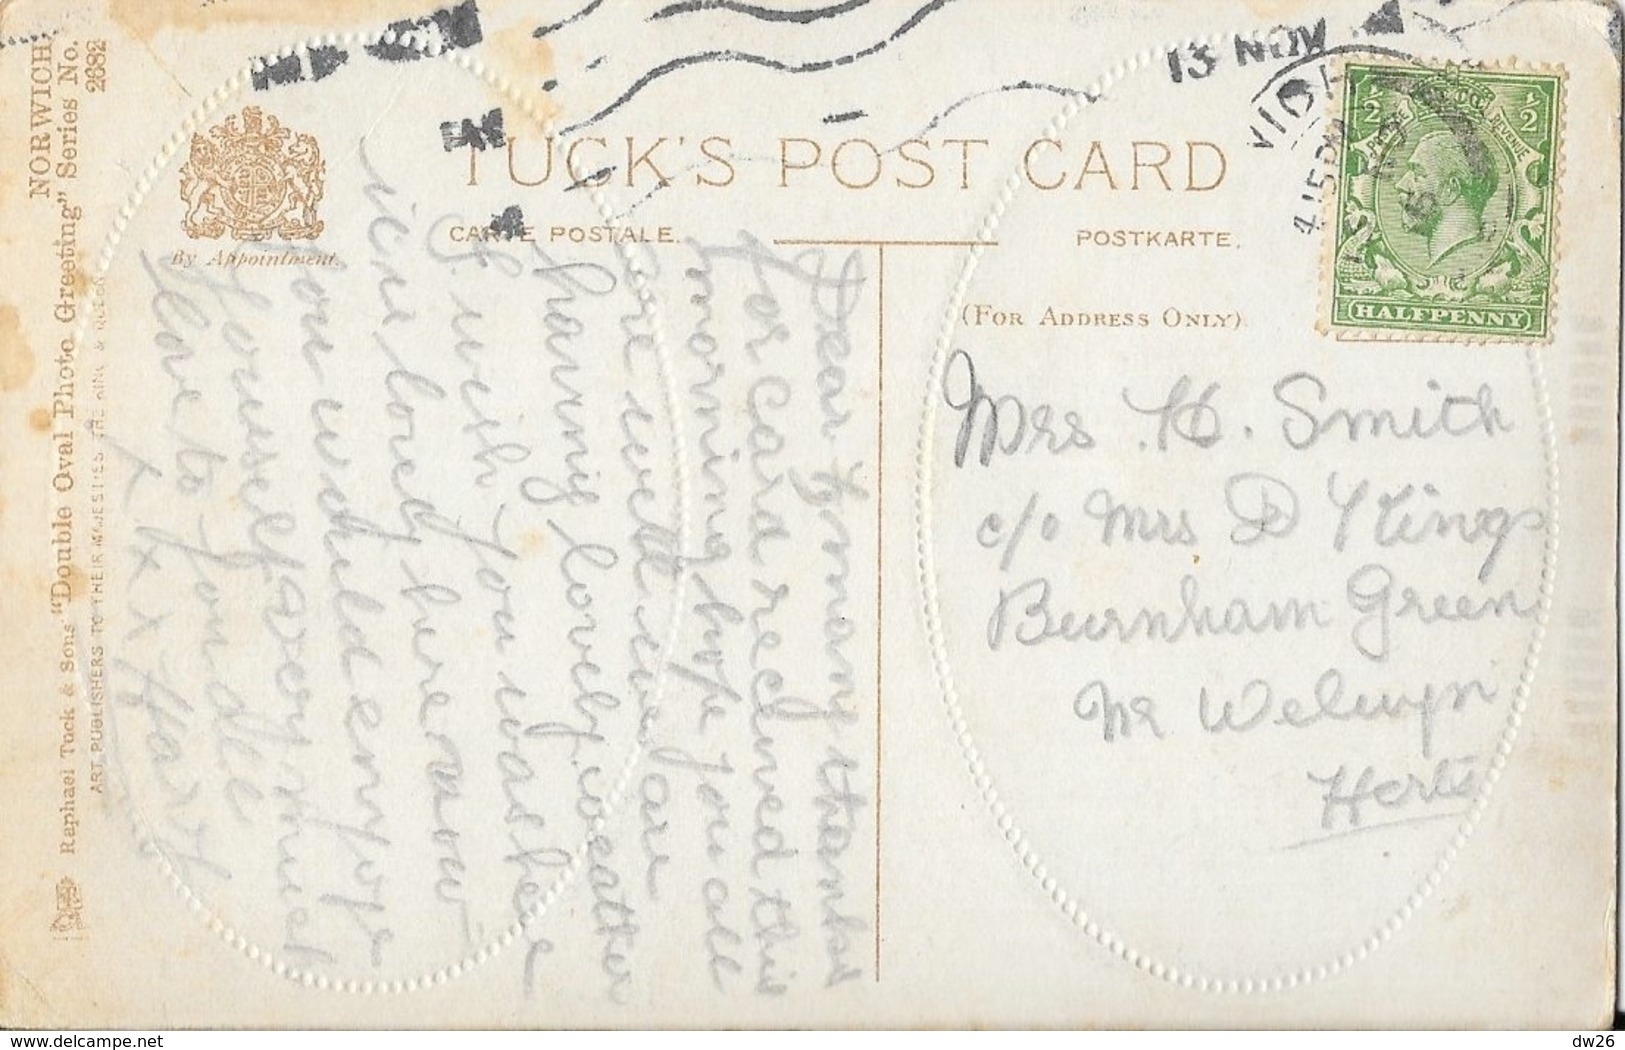 NORWICH
Raphael Tuck & Sons' "Double Oval Photo Greeting" Series No. 2682
ART PUBLISHERS TO THEIR MAJESTIES THE KING & QUEEN
By Appointment.
TUCK'S POST CARD
CARTE POSTALE.
POSTKARTE.
(FOR ADDRESS ONLY)
13 NOV
4 15 PM
POSTAGE REVENUE
½
½
HALFPENNY
Dear
thanks
for card received this
morning hope you all
are well we are
having lovely weather
I wish you was here
it's lovely here now
you would enjoy
yourself very much
love to you all
x x x x
Mrs H. Smith
c/o Mrs D
Burnham Green
Nr Welwyn
Herts
delcampe.net
dw26